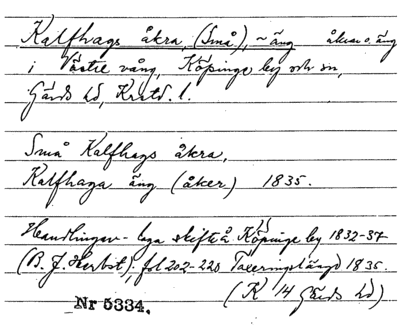 Kalfhags åkra, (Små), ~ äng åkrar o. äng
i Västre vång, Köpinge by och sn,
Gärds hd, Kristd. l.
Små Kalfhags åkra,
Kalfhaga äng (åker) 1835.
Handlingar - laga skifte å Köpinge by 1832-37
(B. J. Herbst). fol 202-220 Taxeringslängd 1835.
(K 14 Gärds hd)
Nr 5334.